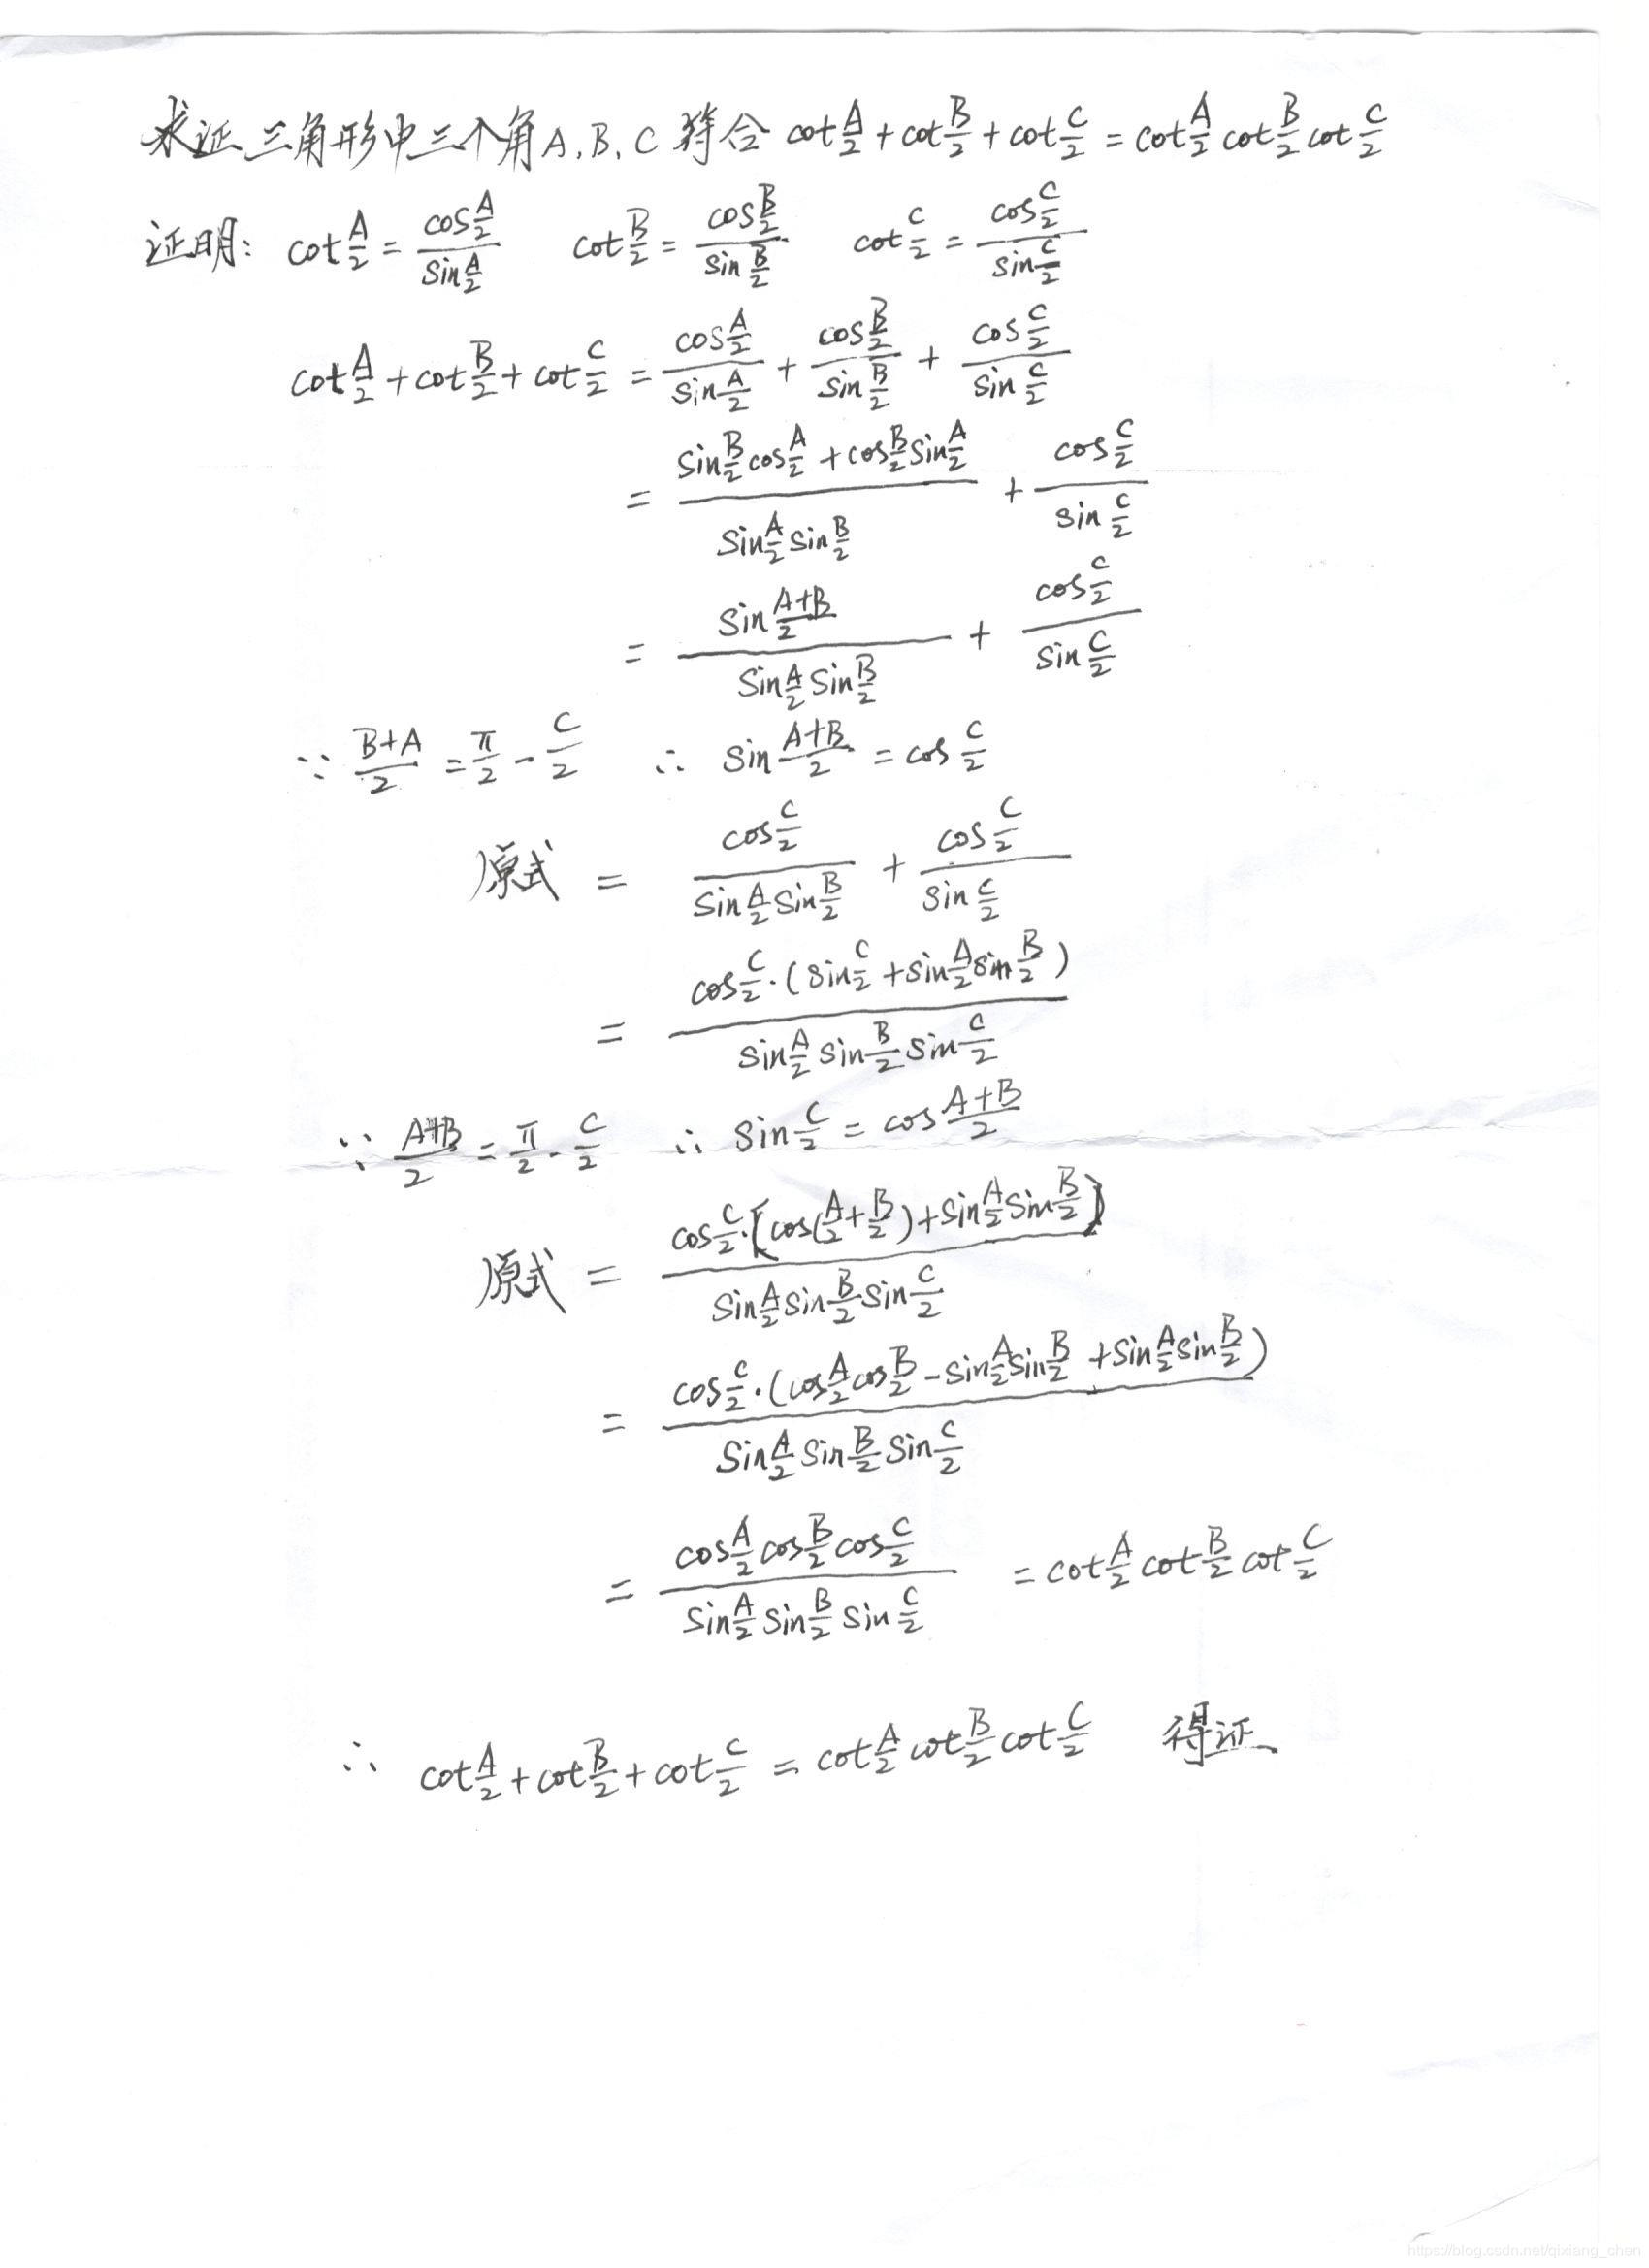 求证三角形中三个角A,B,C符合 cot A/2 + cot B/2 + cot C/2 = cot A/2 cot B/2 cot C/2
证明: cot A/2 = cos A/2 / sin A/2   cot B/2 = cos B/2 / sin B/2   cot C/2 = cos C/2 / sin C/2
cot A/2 + cot B/2 + cot C/2 = cos A/2 / sin A/2 + cos B/2 / sin B/2 + cos C/2 / sin C/2
= (sin B/2 cos A/2 + cos B/2 sin A/2) / (sin A/2 sin B/2) + cos C/2 / sin C/2
= sin (A+B)/2 / (sin A/2 sin B/2) + cos C/2 / sin C/2
∵ (B+A)/2 = π/2 - C/2   ∴ sin (A+B)/2 = cos C/2
原式 = cos C/2 / (sin A/2 sin B/2) + cos C/2 / sin C/2
= cos C/2 · (sin C/2 + sin A/2 sin B/2) / (sin A/2 sin B/2 sin C/2)
∵ (A+B)/2 = π/2 - C/2   ∴ sin C/2 = cos (A+B)/2
原式 = cos C/2 · [cos(A/2 + B/2) + sin A/2 sin B/2] / (sin A/2 sin B/2 sin C/2)
= cos C/2 · (cos A/2 cos B/2 - sin A/2 sin B/2 + sin A/2 sin B/2) / (sin A/2 sin B/2 sin C/2)
= (cos A/2 cos B/2 cos C/2) / (sin A/2 sin B/2 sin C/2) = cot A/2 cot B/2 cot C/2
∴ cot A/2 + cot B/2 + cot C/2 = cot A/2 cot B/2 cot C/2   得证、
https://blog.csdn.net/qixiang_chen